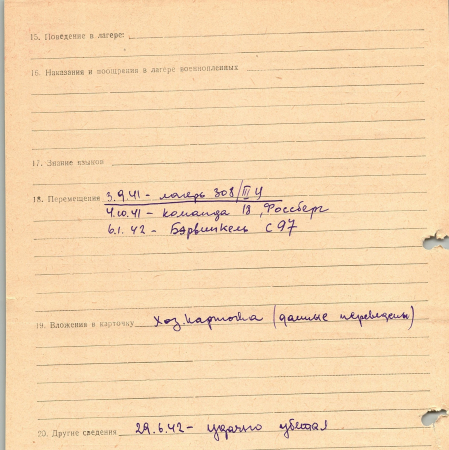 15. Поведение в лагере:
16. Наказания и поощрения в лагере военнопленных
17. Знание языков
18. Перемещение 3.9.41 - лагерь 308/III Ц
4.10.41 - команда 18, Фоссберг
6.1.42 - Бэрвинкель С 97
19. Вложения в карточку Хоз. карточка (данные переведены)
20. Другие сведения 29.6.42 - удачно убежал